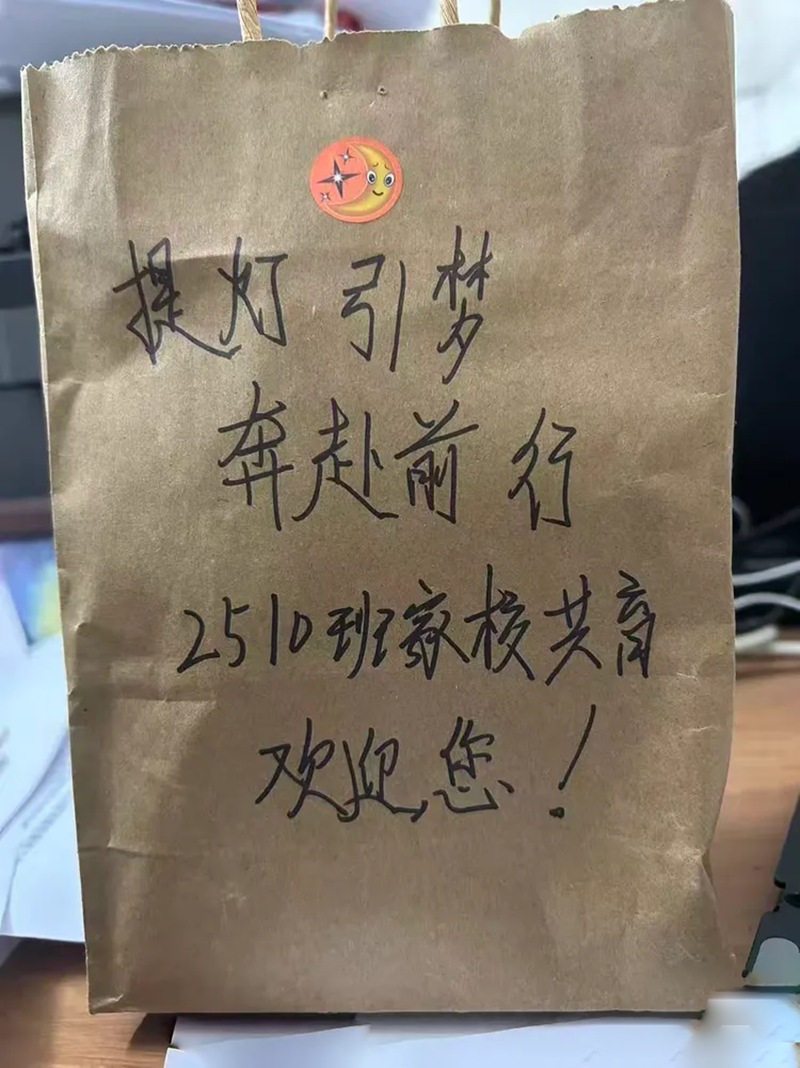 提灯引梦
奔赴前行
2510班家校共育
欢迎您！